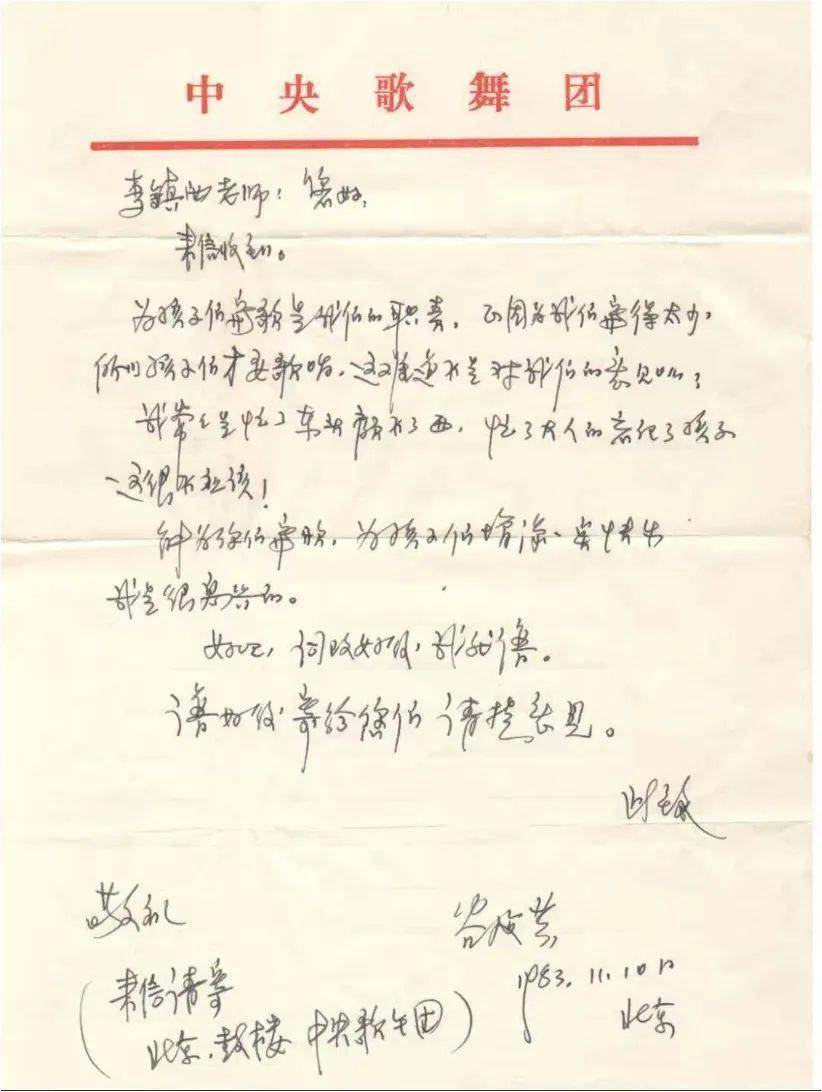 中央歌舞团
李镇西老师：您好，
来信收到。
为孩子们写歌是我们的职责，正因为我们写得太少，
所以孩子们才要歌唱，这难道不是对我们的意见吗？
我常常是忙了东头顾不了西，忙了大人的忘记了孩子
这很不应该！
能为你们写歌，为孩子们增添一些快乐
我是很高兴的。
如，词改好后，我就谱。
谱好后寄给您们请提意见。
此致
敬礼
谷建芬
1983.11.10日
北京
（来信请寄
北京.鼓楼 中央歌午团）